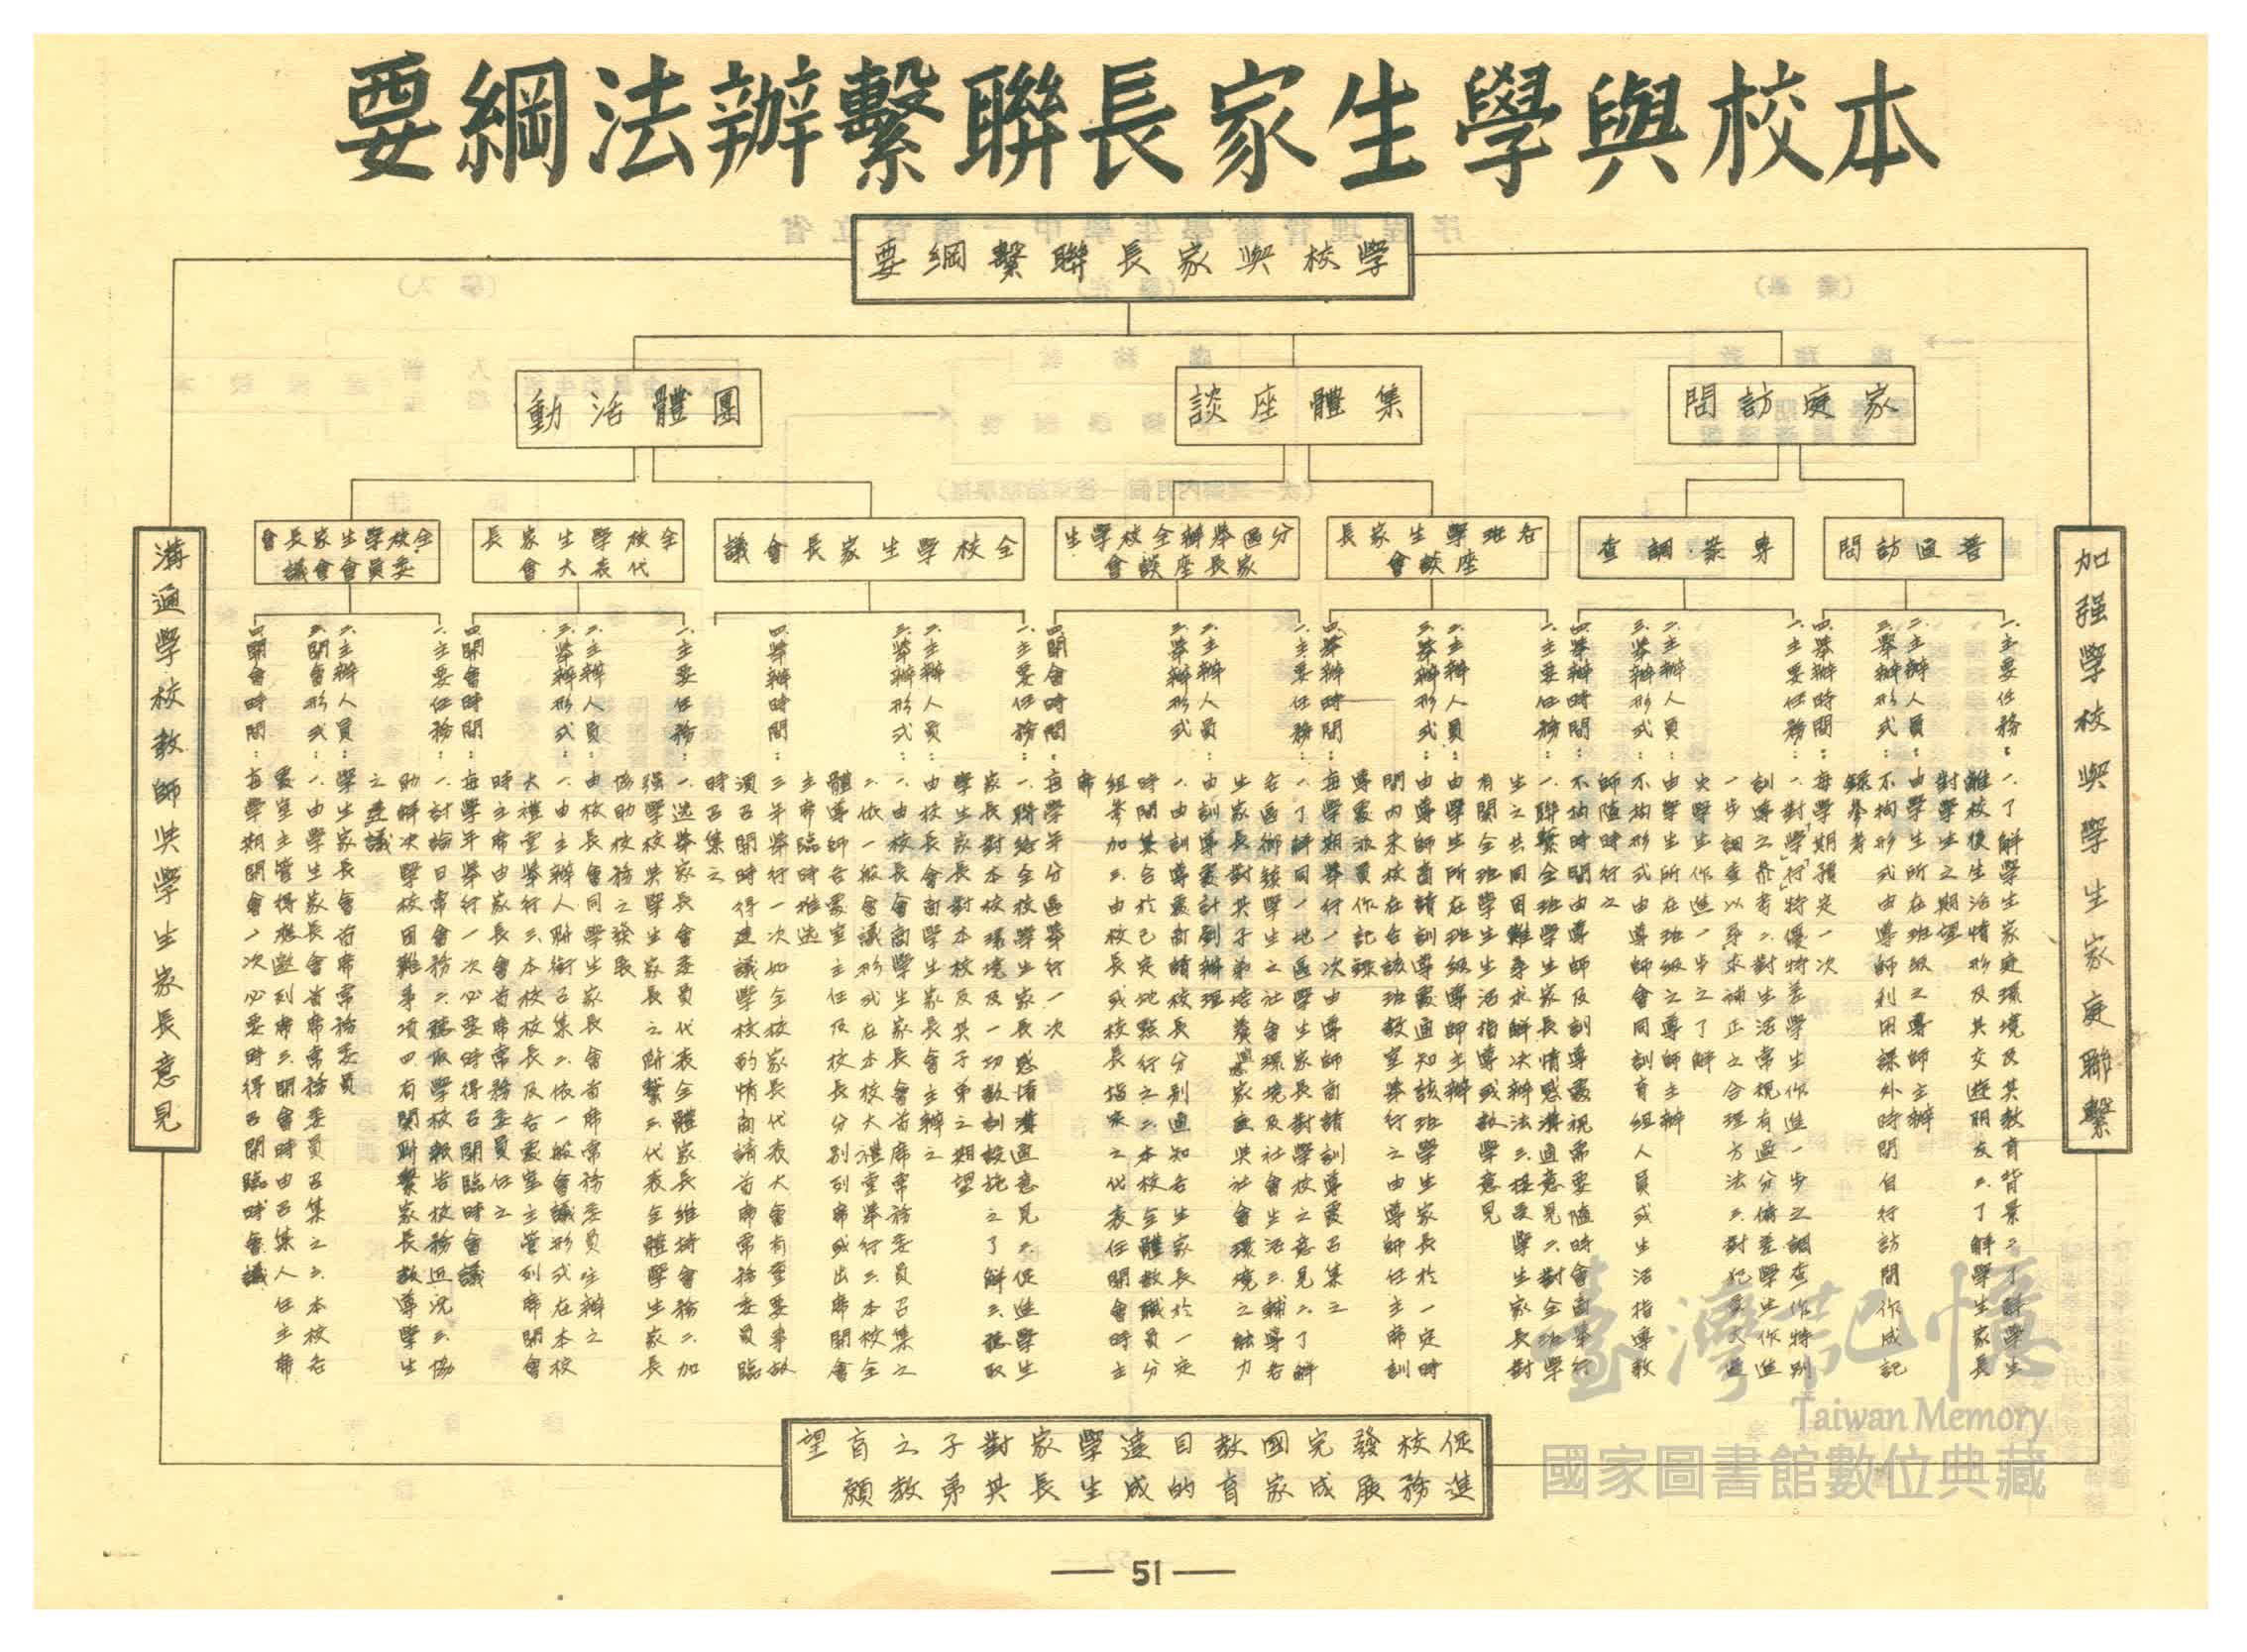 本校與學生家長聯繫辦法綱要
學校與家長聯繫綱要
家庭訪問
集體座談
團體活動
普通訪問
專業調查
各班學生家長
座談會
分區舉辦全校學生
家長座談會
全校學生家長會議
全校學生家長
代表大會
全校學生家長會
委員會會議
加强學校與學生家庭聯繫
一.主要任務：一.了解學生家庭環境及其教育背景二.了解學生
離校後生活情形及其交遊朋友三.了解學生家長
對學生之期望
二.主辦人員：由學生所在班級之導師主辦
三.舉辦形式：不拘形式由導師利用課外時間自行訪問作成記
錄參考
四.舉辦時間：每學期預定一次
一.主要任務：一.對「學」「行」特優特差學生作進一步之調查作特別
訓導之參考二.對生活常規有過分偏差學生作進
一步調查以爭求補正之合理方法三.對犯重大過
失學生作進一步之了解
二.主辦人員：由學生所在班級之導師主辦
三.舉辦形式：不拘形式由導師會同訓育組人員或生活指導教
師隨時行之
四.舉辦時間：不拘時間由導師及訓導處視需要隨時會商舉行
一.主要任務：一.聯繫全班學生家長情感溝通意見二.對全班學
生之共同困難爭求解決辦法三.接受學生家長對
有關全班學生生活指導或教學意見
二.主辦人員：由學生所在班級導師主辦
三.舉辦形式：由導師商請訓導處通知該班學生家長於一定時
間內來校在各該班教室舉行之由導師任主席訓
導處派員作記錄
四.舉辦時間：每學期舉行一次由導師商請訓導處召集之
一.主要任務：一.了解同一地區學生家長對學校之意見二.了解
各區街鎮學生之社會環境及社會生活三.輔導各
生家長對其子弟培養適應家庭與社會環境之能力
二.主辦人員：由訓導處計劃辦理
三.舉辦形式：一.由訓導處商請校長分別通知各生家長於一定
時間集合於已定地點行之二.本校全體教職員分
組參加三.由校長或校長指定之代表任開會時主
席
四.開會時間：每學年分區舉行一次
一.主要任務：一.聯絡全校學生家長感情溝通意見二.促進學生
家長對本校環境及一切教訓設施之了解三.聽取
學生家長對本校及其子弟之期望
二.主辦人員：由校長會商學生家長會主辦之
三.舉辦形式：一.由校長會商學生家長會首席常務委員召集之
二.依一般會議形式在本校大禮堂舉行三.本校全
體導師各處室主任及校長分別列席或出席開會
主席臨時推選
四.舉辦時間：三年舉行一次如全校家長代表大會有重要事故
須召開時得建議學校酌情商請首席常務委員臨
時召集之
一.主要任務：一.選舉家長會委員代表全體家長維持會務二.加
强學校與學生家長之聯繫三.代表全體學生家長
協助校務之發展
二.主辦人員：由校長會同學生家長會首席常務委員主辦之
三.舉辦形式：一.由主辦人聯銜召集二.依一般會議形式在本校
大禮堂舉行三.本校校長及各處室主管列席開會
時主席由家長會首席常務委員任之
四.開會時間：每學年舉行一次必要時得召開臨時會議
一.主要任務：一.討論日常會務二.聽取學校報告校務近況三.協
助解決學校困難事項四.有關聯繫家長教導學生
之建議
二.主辦人員：學生家長會首席常務委員
三.開會形式：一.由學生家長會首席常務委員召集之二.本校各
處室主管得應邀列席三.開會時由召集人任主席
四.開會時間：每學期開會一次必要時得召開臨時會議
溝通學校教師與學生家長意見
促進校務發展完成國家教育目的達成學生家長對其子弟之教育願望
臺灣記憶
Taiwan Memory
國家圖書館數位典藏
— 51 —